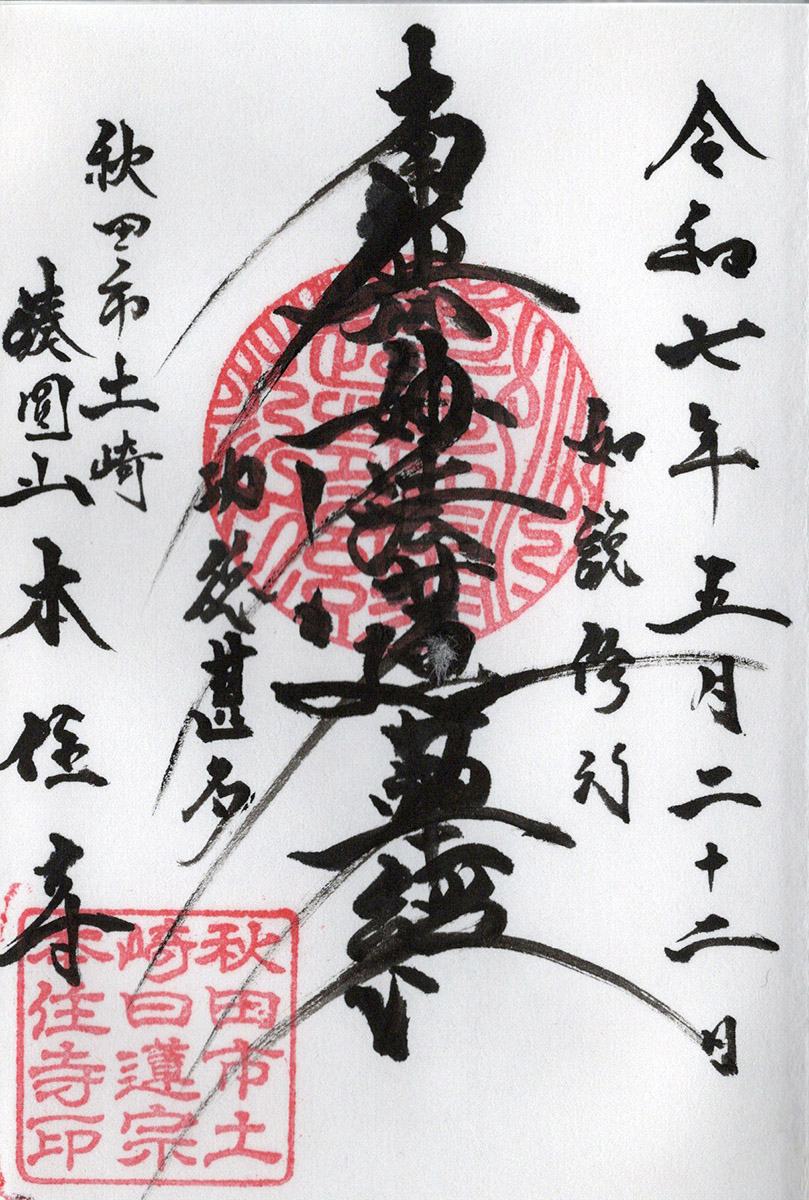 令和七年五月二十二日
如説修行
南無妙法蓮華経
功徳甚多
秋田市土崎
湊圓山本住寺
秋田市土
崎日蓮宗
本住寺印